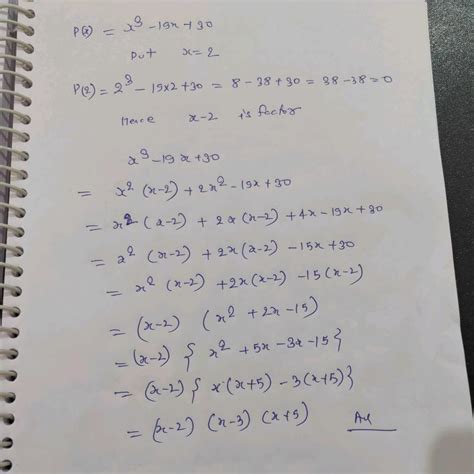 P(x) = x³ - 19x + 30
Put x = 2
P(2) = 2³ - 19×2 + 30 = 8 - 38 + 30 = 38 - 38 = 0
Hence x-2 is factor
x³ - 19x + 30
= x² (x-2) + 2x² - 19x + 30
= x² (x-2) + 2x (x-2) + 4x - 19x + 30
= x² (x-2) + 2x (x-2) - 15x + 30
= x² (x-2) + 2x (x-2) - 15 (x-2)
= (x-2) (x² + 2x - 15)
= (x-2) { x² + 5x - 3x - 15 }
= (x-2) { x (x+5) - 3 (x+5) }
= (x-2) (x-3) (x+5)